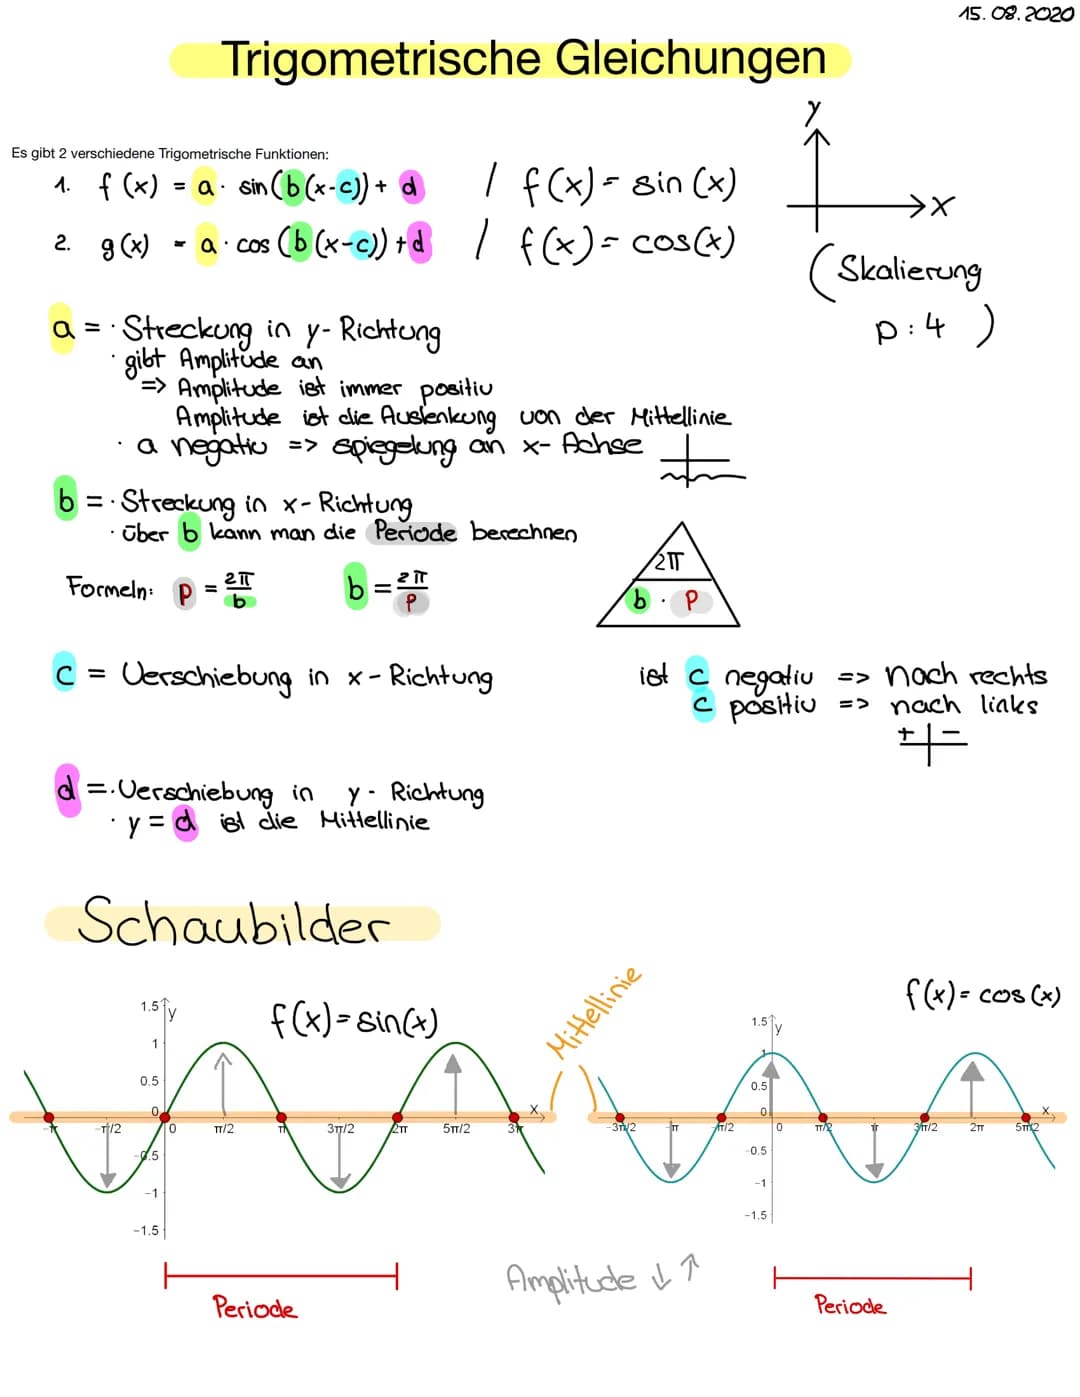 15.08.2020
Trigometrische Gleichungen
Es gibt 2 verschiedene Trigometrische Funktionen:
1. f(x) = a · sin(b(x-c)) + d / f(x) = sin(x)
2. g(x) = a · cos(b(x-c)) + d / f(x) = cos(x)
y
x
(Skalierung
p:4)
a = · Streckung in y-Richtung
· gibt Amplitude an
=> Amplitude ist immer positiv
Amplitude ist die Auslenkung von der Mittellinie
· a negativ => spiegelung an x-Achse
b = · Streckung in x-Richtung
· über b kann man die Periode berechnen
Formeln: p = 2π/b b = 2π/p
2π
b · p
c = Verschiebung in x-Richtung
ist c negativ => nach rechts
c positiv => nach links
+ -
d = · Verschiebung in y-Richtung
· y = d ist die Mittellinie
Schaubilder
f(x) = sin(x)
Mittellinie
f(x) = cos(x)
1.5 y
1
0.5
0
-π -π/2 0 π/2 π 3π/2 2π 5π/2 3π x
-0.5
-1
-1.5
1.5 y
1
0.5
0
-3π/2 -π -π/2 0 π/2 π 3π/2 2π 5π/2 x
-0.5
-1
-1.5
Periode
Amplitude ↓ ↑
Periode